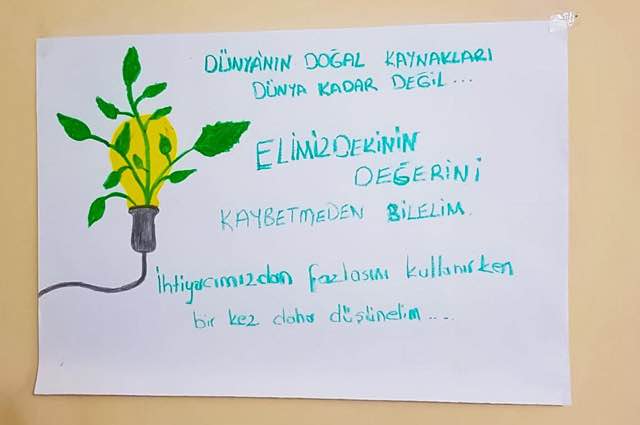 DÜNYA'NIN DOĞAL KAYNAKLARI
DÜNYA KADAR DEĞİL...
ELİMİZDEKİNİN
DEĞERİNİ
KAYBETMEDEN BİLELİM.
İhtiyacımızdan fazlasını kullanırken
bir kez daha düşünelim...